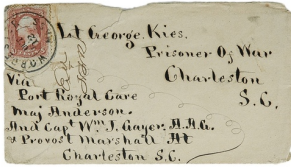 Lt George. Kies.
Prisoner Of War
Charleston
S. C.
Via
Port Royal Care
Maj Anderson.
And Capt Wm J. Gayer. A.A.G.
& Provost Marshall At
Charleston S. C.